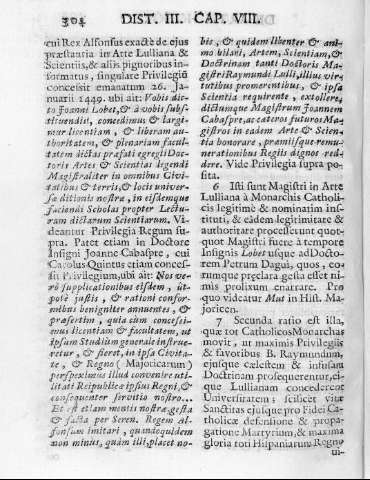 304 DIST. III. CAP. VIII.
cui Rex Alfonsus exactè de ejus
præstantia in Arte Lulliana &
Scientiis, & aliis pignoribus in-
formatus, singulare Privilegiũ
concessit emanatum 26. Ja-
nuarii 1449. ubi ait: Vobis dic-
to Joanni Lobet, & à vobis subs-
tituendis, concedimus & largi-
mur licentiam, & liberam au-
thoritatem, & plenariam facul-
tatem dictas præfati egregii Doc-
toris Artes & Scientias legendi
Magistraliter in omnibus Civi-
tatibus & terris, & locis univer-
sæ ditionis nostræ, in eisdemque
faciendi Scholas propter Lectu-
ram dictarum Scientiarum. Vi-
deantur Privilegia Regum su-
pra. Patet etiam in Doctore
Insigni Joanne Cabaspre, cui
Carolus Quintus etiam conces-
sit Privilegium, ubi ait: Nos ve-
rò supplicationibus eisdem, ut-
posè justis, & rationi confor-
mibus benigniter annuentes, &
præsertim, quia cum concessi-
mus licentiam & facultatem, ut
ipsum Studium generale instrue-
retur, & fieret, in ipsa Civita-
te, & Regno (Majoricarum)
perspeximus illud convenire uti-
litati Reipublicæ ipsius Regni, &
consequenter servitio nostro...
Et est etiam mentis nostræ gesta
& facta per Seren. Regem Al-
fonsum imitari, quandoquidem
non minus, quàm illi, placet no-
bis, & quidem libenter & ani-
mo hilari, Artem, Scientiam, &
Doctrinam tanti Doctoris Ma-
gistri Raymundi Lulli, illius vir-
tutibus promerentibus, & ipsa
Scientia requirente, extollere,
dictumque Magistrum Joannem
Cabaspre, ac cæteros futuros Ma-
gistros in eadem Arte & Scien-
tia honorare, præmiisque remu-
nerationibus Regiis dignos red-
dere. Vide Privilegia supra po-
sita.
6 Isti sunt Magistri in Arte
Lulliana à Monarchis Catholi-
cis legitimè & nominatim ins-
tituti, & eâdem legitimitate &
authoritate processerunt quot-
quot Magistri fuere à tempore
Insignis Lobet usque ad Docto-
rem Petrum Dagui, quos, eo-
rumque præclara gesta esset ni-
mis prolixum enarrare. Pro
quo videatur Mut in Hist. Ma-
joricen.
7 Secunda ratio est ista,
quæ tot Catholicos Monarchas
movit, ut maximis Privilegiis
& favoribus B. Raymundum,
ejusque cælestem & infusam
Doctrinam prosequerentur, ei-
que Lullianam concederent
Universitatem; scilicet vitæ
Sanctitas ejusque pro Fidei Ca-
tholicæ defensione & propa-
gatione Martyrium, & maxima
gloria toti Hispaniarum Regno